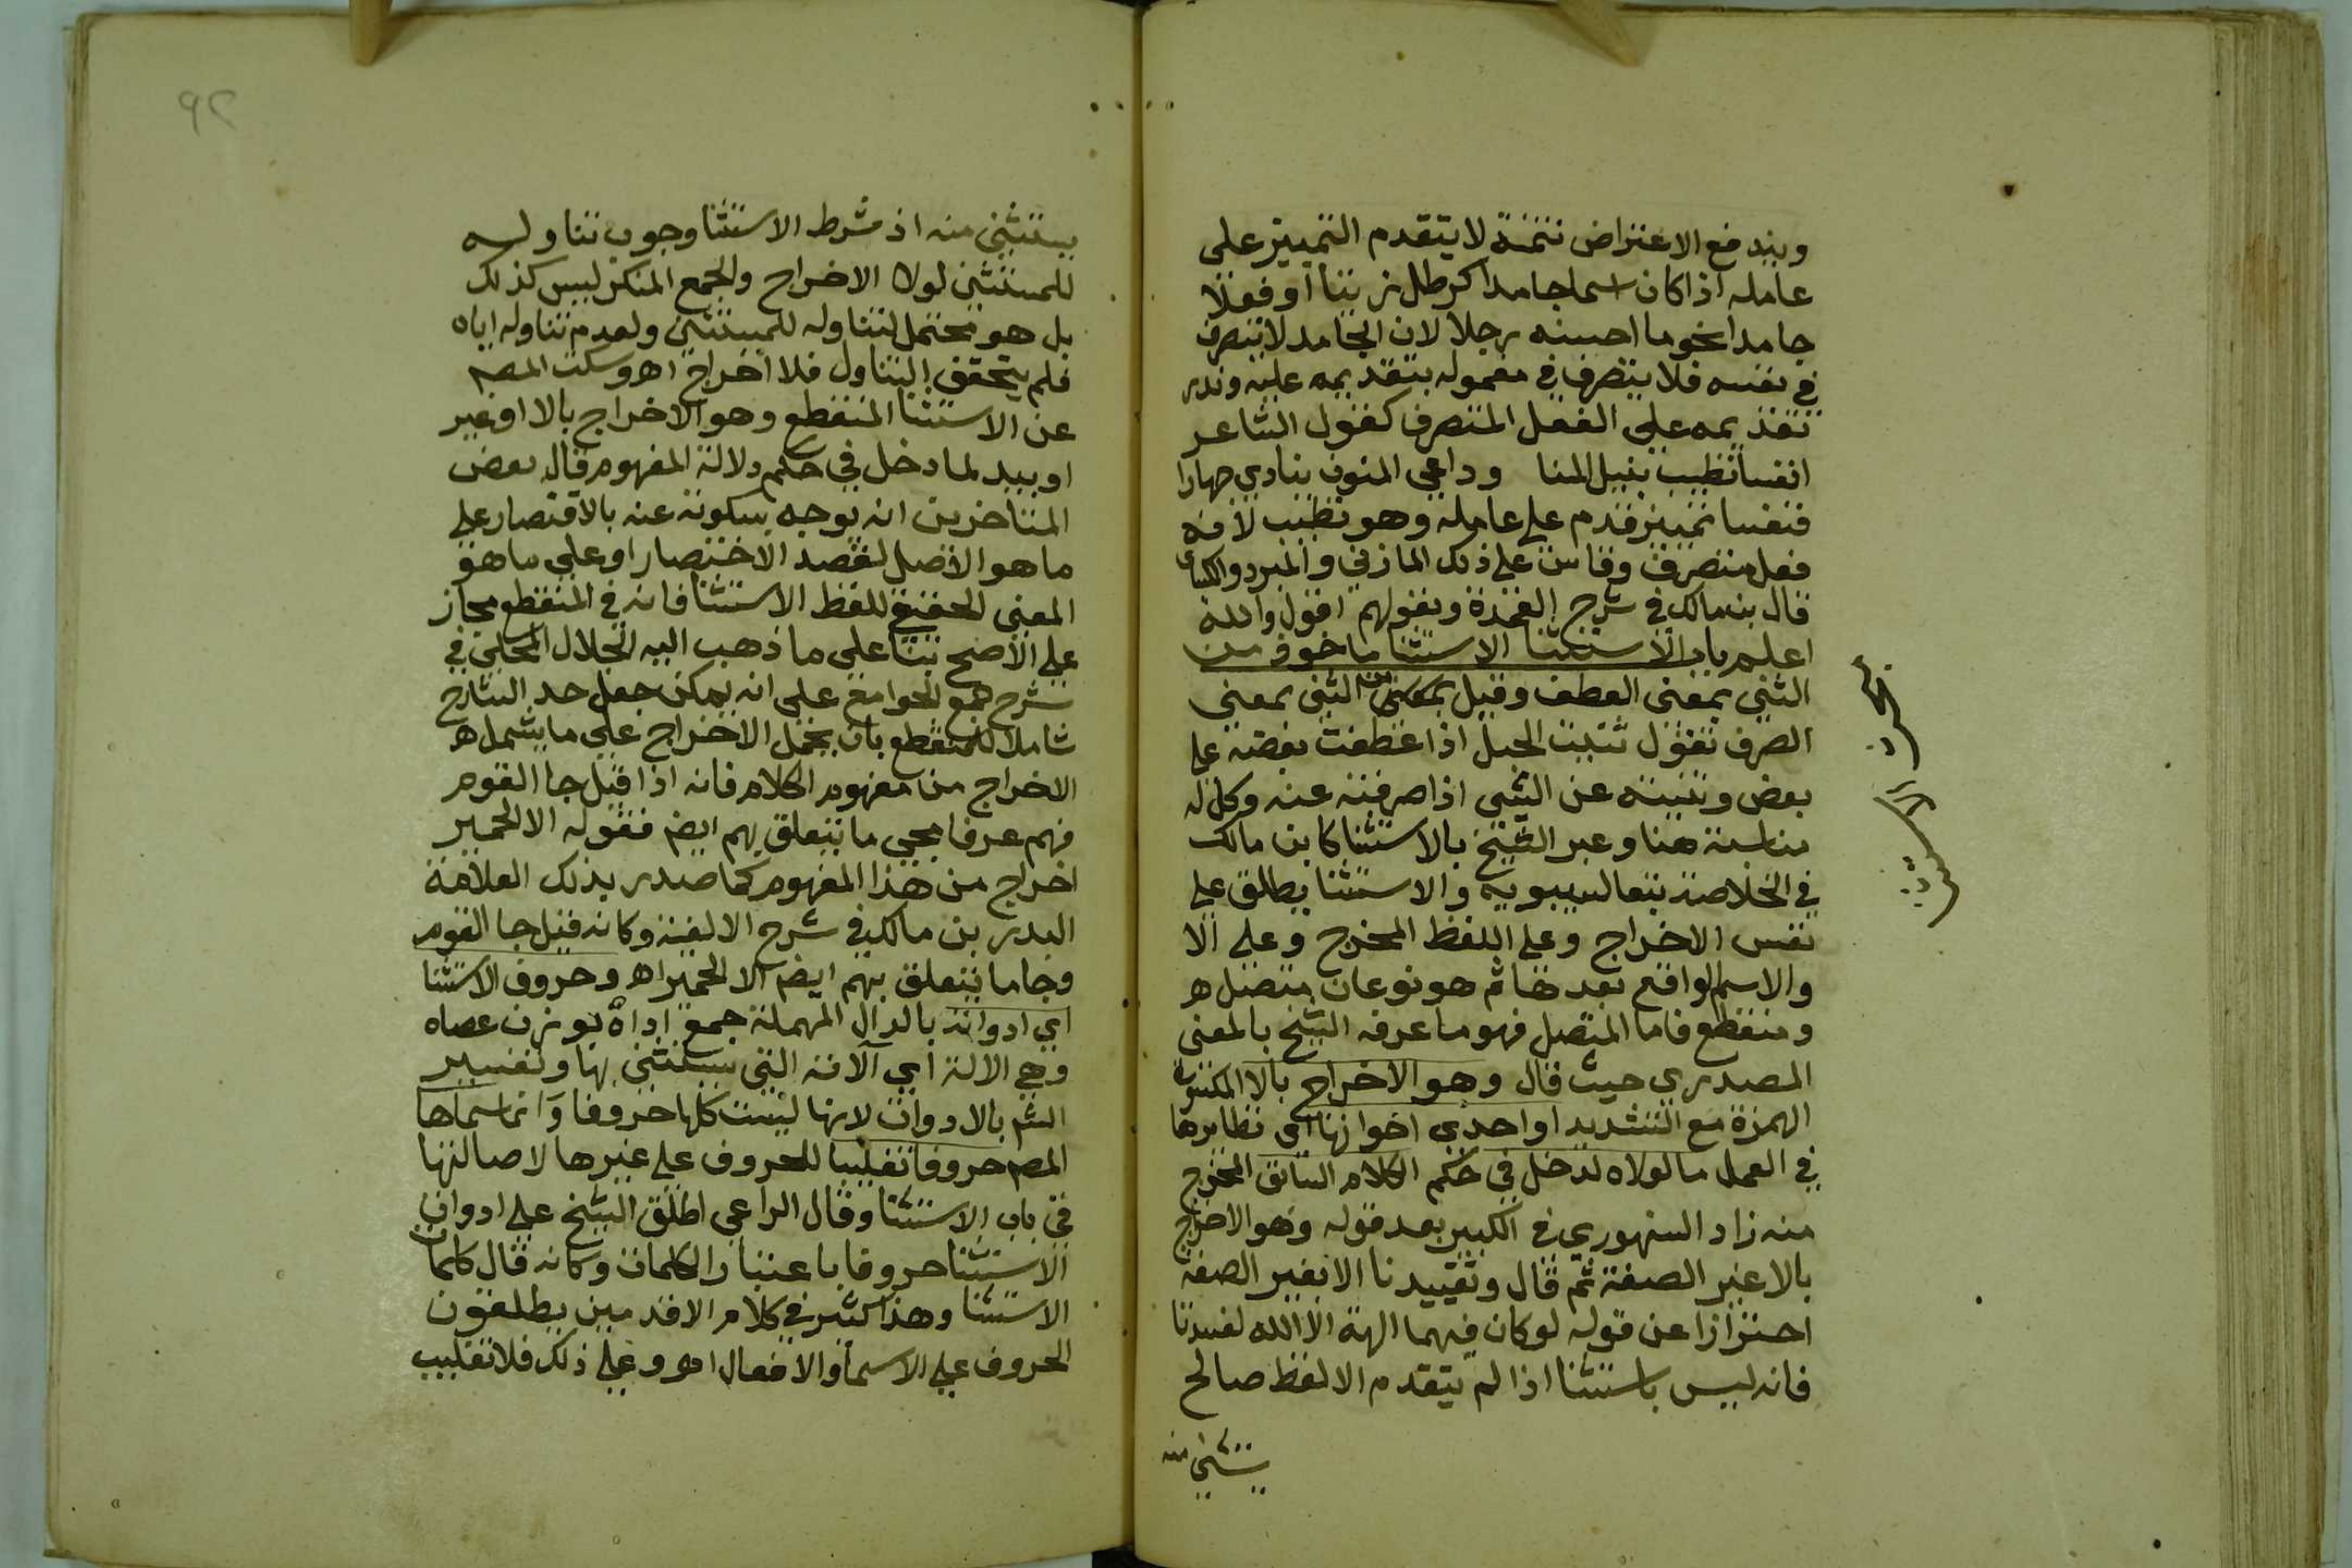 ويندفع الاعتراض تتمة لا يتقدم التمييز على
عامله اذا كان اسما جامدا كرطل زيتا او فعلا
جامدا نحو ما احسنه رجلا لان الجامد لا يتصرف
في نفسه فلا يتصرف في معموله بتقديمه عليه وندر
تقديمه على الفعل المتصرف كقول الشاعر
انفسا تطيب بنيل المنا وداعي المنون ينادي جهارا
فنفسا تمييز قدم على عامله وهو تطيب لانه
فعل متصرف وقاس على ذلك المازني والمبرد والكسائى
قال بن مالك في شرح العمدة وبقولهم اقول والله
اعلم باب الاستثنا الاستثنا ماخوذ من
الثني بمعنى العطف وقيل من الثني بمعنى
الصرف تقول ثنيت الحبل اذا عطفت بعضه على
بعض وثنيته عن الشي اذا صرفته عنه وكل له
مناسبة هنا وعبر الشيخ بالاستثنا كابن مالك
في الخلاصة تبعا لسيبويه والاستثنا يطلق على
نفس الاخراج وعلى اللفظ المخرج وعلى الا
والاسم الواقع بعدها ثم هو نوعان متصل
ومنقطع فاما المتصل فهو ما عرفه الشيخ بالمعنى
المصدري حيث قال وهو الاخراج بالا المكسورة
الهمزة مع التشديد او احدى اخواتها اي نظايرها
في العمل ما لولاه لدخل في حكم الكلام السابق المخرج
منه زاد السنهوري في الكبير بعد قوله وهو الاخراج
بالا غير الصفة ثم قال وتقييدنا الا بغير الصفة
احترازا عن قوله لو كان فيهما الهة الا الله لفسدتا
فانه ليس باستثنا اذا لم يتقدم الا لفظ صالح
يستثنى منه
يستثنى منه اذ شرط الاستثنا وجوب تناوله
للمستثنى لولا الاخراج والجمع المنكر ليس كذلك
بل هو محتمل لتناوله للمستثنى ولعدم تناوله اياه
فلم يتحقق التناول فلا اخراج اهـ وسكت المصم
عن الاستثنا المنقطع وهو الاخراج بالا او غير
او بيد لما دخل في حكم دلالة المفهوم قال بعض
المتاخرين انه يوجه سكوته عنه بالاقتصار على
ما هو الاصل لقصد الاختصار او على ما هو
المعنى الحقيقي للفظ الاستثنا فانه في المنقطع مجاز
على الاصح بنا على ما ذهب اليه الجلال المحلي في
شرح جمع الجوامع على انه يمكن جعل حد الشارح
شاملا للمنقطع بان يحمل الاخراج على ما يشمل
الاخراج من مفهوم الكلام فانه اذا قيل جا القوم
فهم عرفا مجي ما يتعلق بهم ايضم فقوله الا الحمير
اخراج من هذا المفهوم كما صدر بذلك العلامة
البدر بن مالك في شرح الالفية وكانه قيل جا القوم
وجا ما يتعلق بهم ايضم الا الحمير اهـ وحروف الاستثنا
اي ادواته بالدال المهملة جمع اداة بوزن عصاه
وهي الالة اي آلاته التي يستثنى بها وتفسير
الشم بالادوات لانها ليست كلها حروفا وانما سماها
المصم حروفا تغليبا للحروف على غيرها لاصالتها
في باب الاستثنا وقال الراعي اطلق الشيخ على ادوات
الاستثنا حروفا باعتبار الكلمات وكانه قال كلمات
الاستثنا وهذا كثير في كلام الاقدمين يطلقون
الحروف على الاسما والافعال اهـ وعلى ذلك فلا تغليب